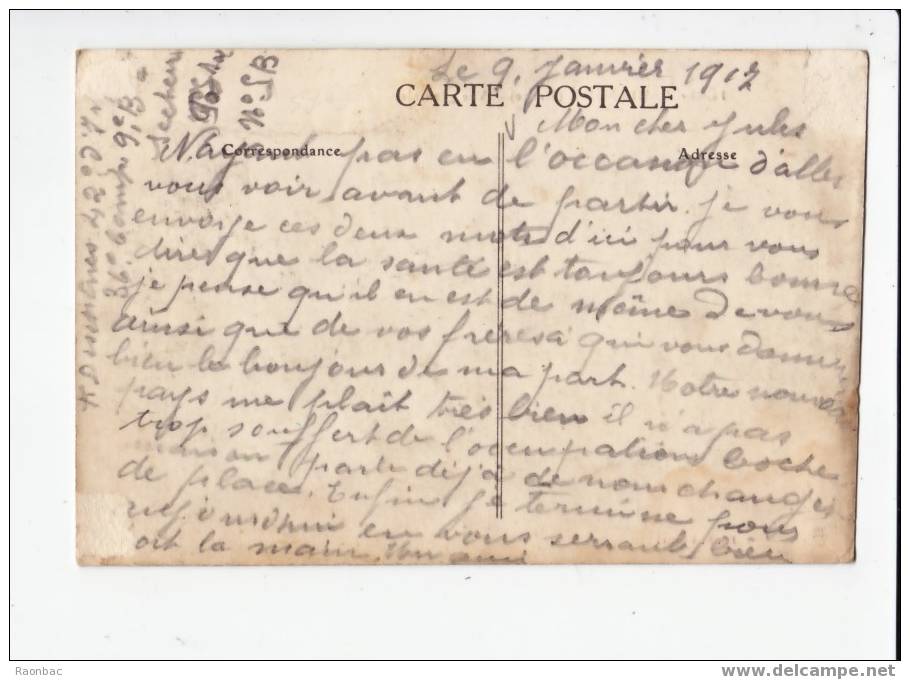 Le 9 Janvier 1917
CARTE POSTALE
Correspondance
Adresse
Mon cher Jules
N'ayant pas eu l'occasion d'aller
vous voir avant de partir je vous
envoije ces deux mots d'ici pour vous
dire que la santé est toujours bonne
je pense qu'il en est de même de vous
ainsi que de vos frères à qui vous donner
bien le bonjour de ma part. Notre nouveau
pays me plait très bien il n'a pas
trop souffert de l'occupation boche
mais on parle déjà de nous changer
de place. Enfin je termine pour
aujourd'hui en vous serrant bien
ort la main. Un ami
Secteur
No 5 B
Raonbac
www.delcampe.net